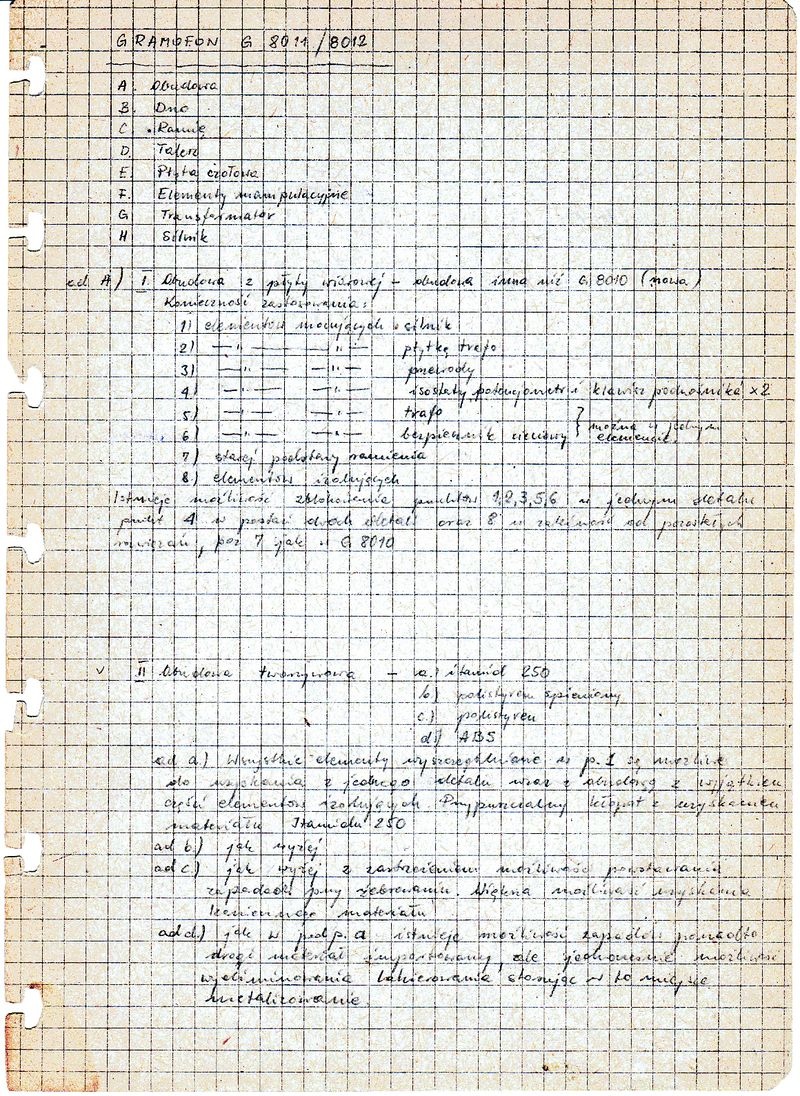 GRAMOFON G 8011/8012
A. Obudowa
B. Dno
C. Ramię
D. Talerz
E. Płyta czołowa
F. Elementy manipulacyjne
G. Transformator
H Silnik
ad A) I. Obudowa z płyty wiórowej - obudowa inna niż G 8010 (nowa)
Konieczność zastosowania:
1) elementów mocujących silnik
2) —"— —"— płytkę trafo
3) —"— —"— przewody
4) —"— —"— isostaty, potencjometr i klawisz podnośnika x2
5) —"— —"— trafo
6) —"— —"— bezpiecznik sieciowy } można w jednym elemencie.
7) starej podstawy ramienia
8) elementów izolujących
Istnieje możliwość zblokowania punktów 1,2,3,5,6 w jednym detalu
punkt 4 w postaci dwóch detali oraz 8 w zależności od pozostałych
rozwiązań, poz 7 jak w G 8010
II Obudowa tworzywowa - a.) itamid 250
b.) polistyren spieniony
c.) polistyren
d.) ABS
ad a.) Wszystkie elementy wyszczególnione w p. I są możliwe
do uzyskania z jednego detalu wraz z obudową z wyjątkiem
części elementów izolujących. Przypuszczalny kłopot z uzyskaniem
materiału Itamidu 250
ad b.) jak wyżej
ad c.) jak wyżej z zastrzeżeniem możliwości powstawania
zapadów przy żebrowaniu. Większa możliwość uzyskania
materiału
ad d.) jak w podp. a istnieje możliwość zapadów ponadto
drogi materiał importowany, ale jednocześnie możliwość
wyeliminowania lakierowania stosując w to miejsce
metalizowanie.